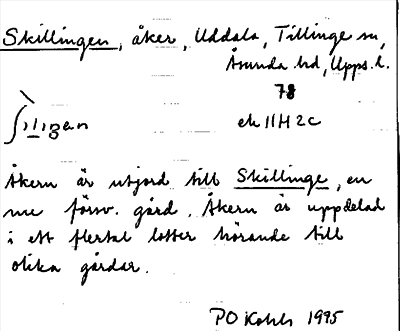 Skillingen, åker, Uddala, Tillinge sn,
Åsunda hd, Upps. l.
78
ʃıłıgen ek 11H 2c
Åkern är utjord till Skillinge, en
nu försv. gård. Åkern är uppdelad
i ett flertal lotter hörande till
olika gårdar.
PO Kohls 1995